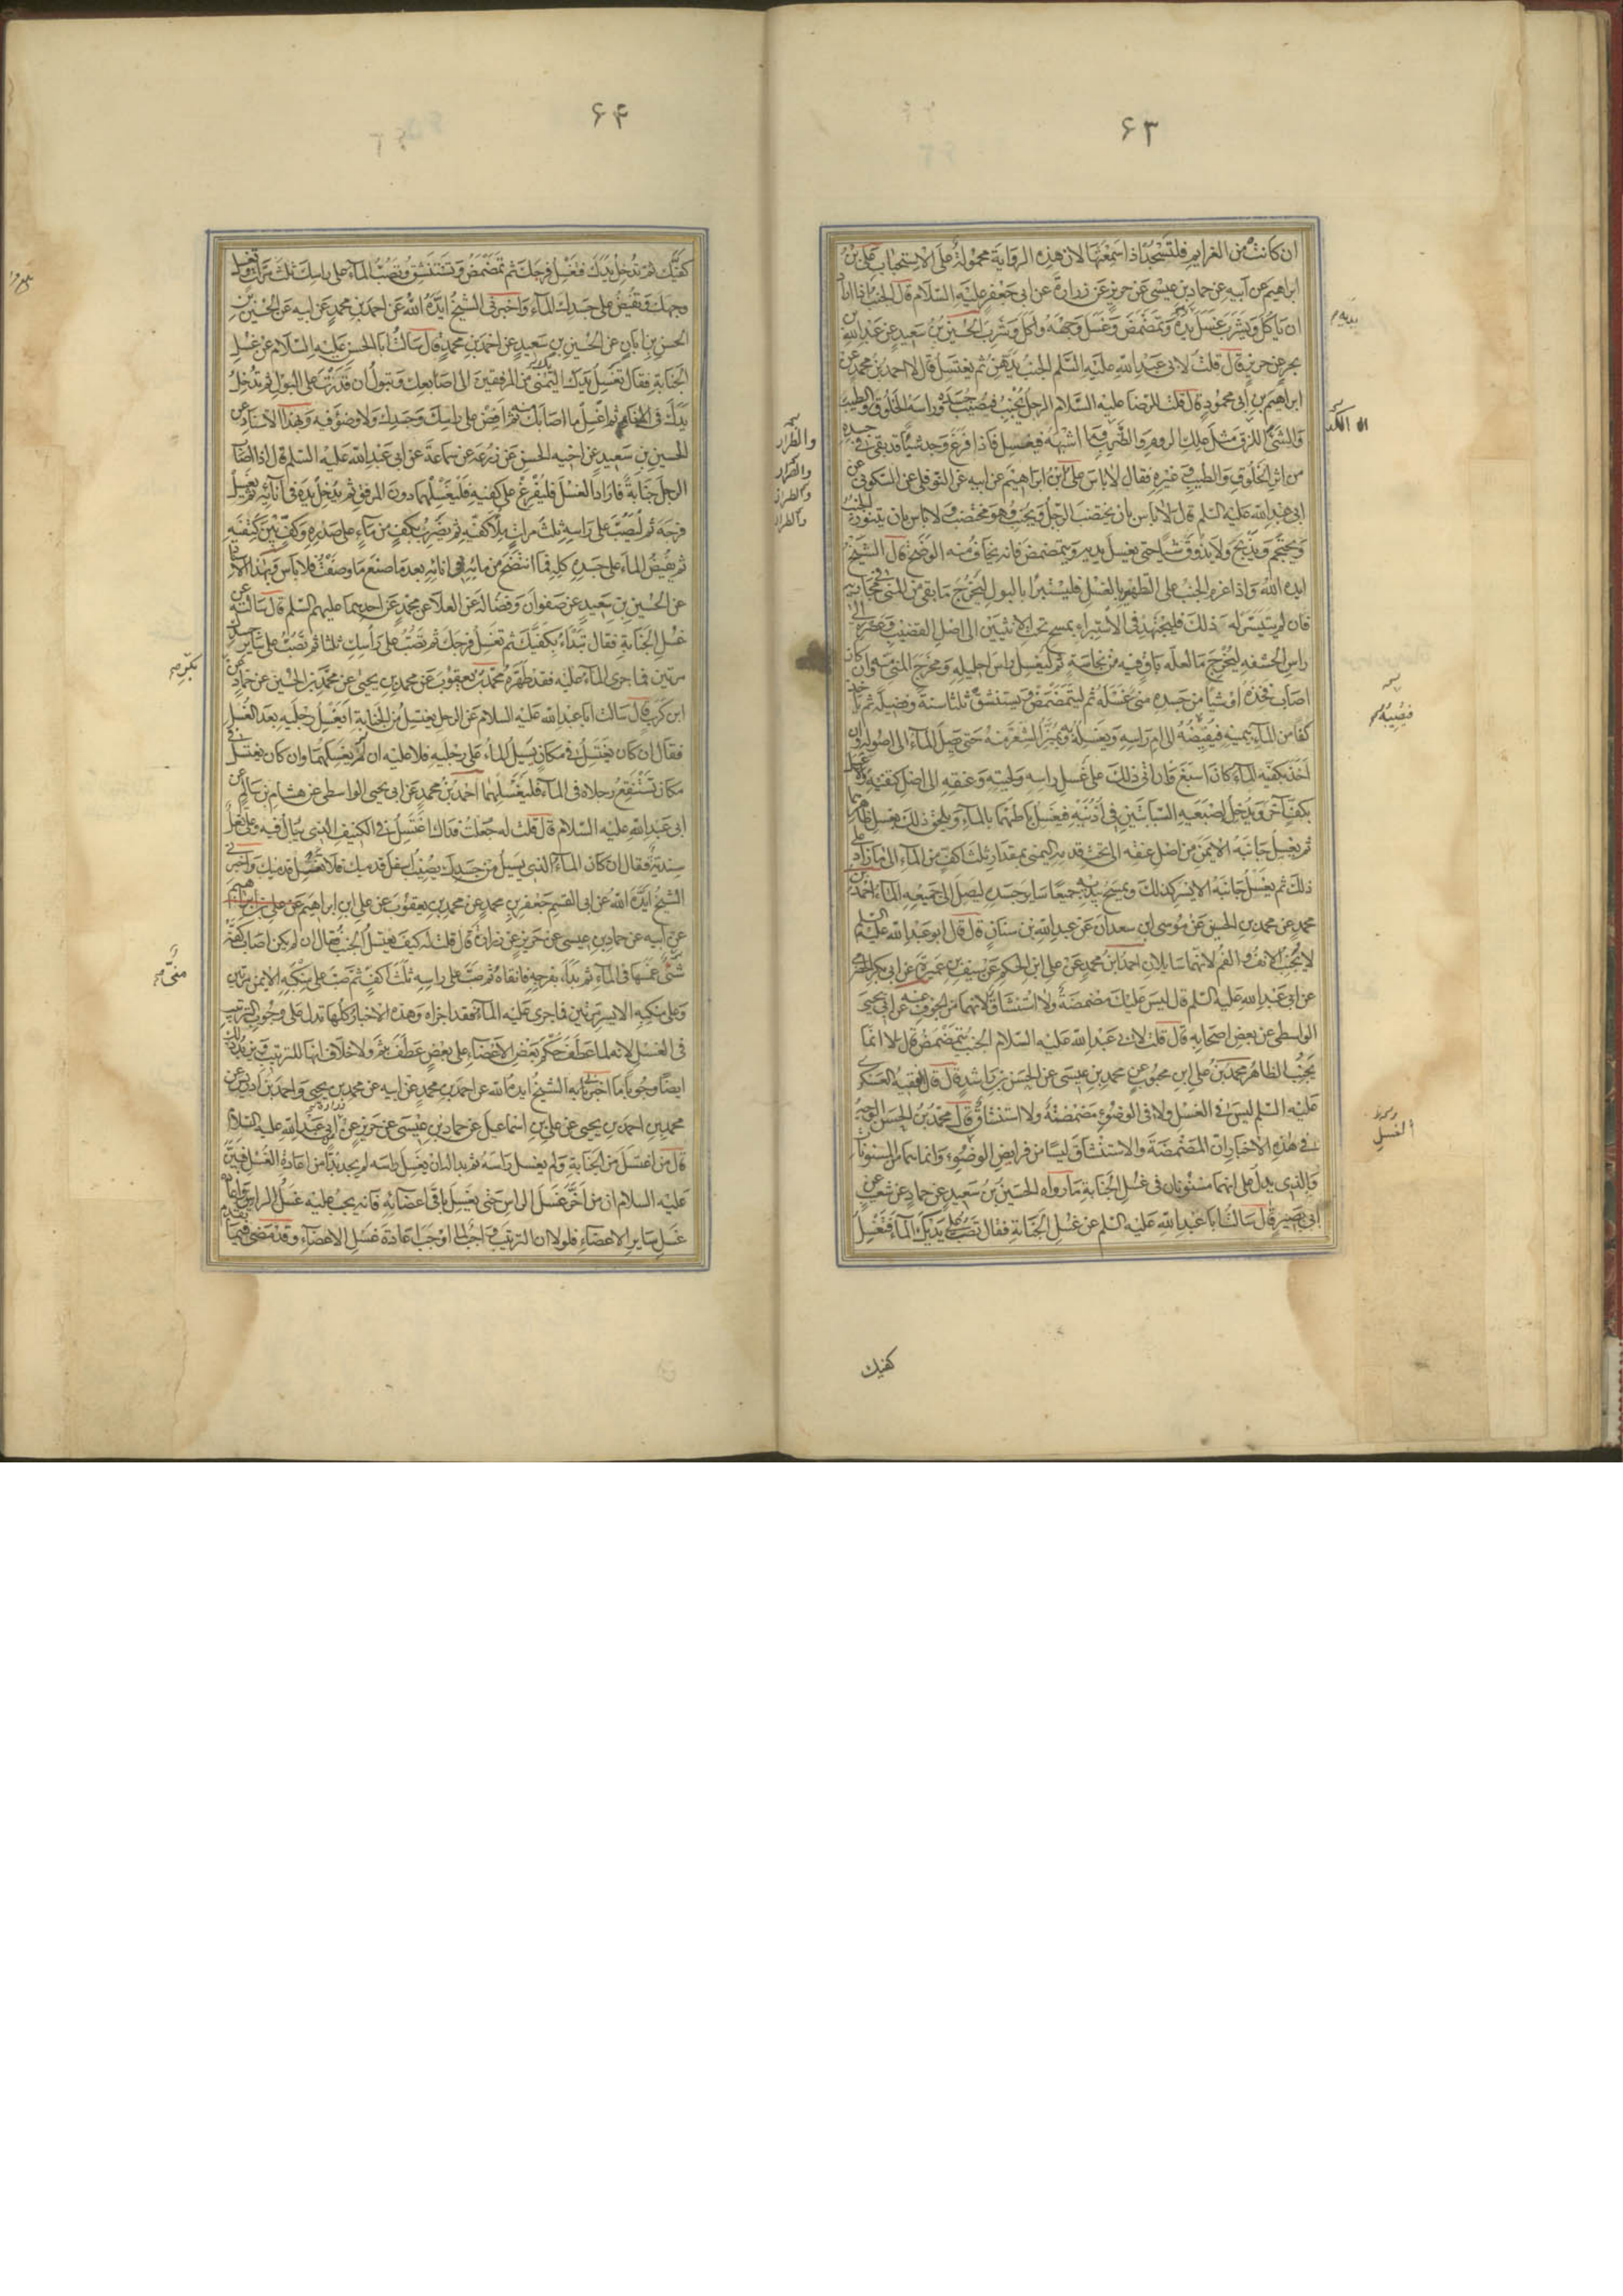 ۶۳
ان كانت من العزايم فلتسجد اذا سمعتها لان هذه الرواية محمولة على الاستحباب علي بن
ابراهيم عن ابيه عن حماد بن عيسى عن حريز عن زرارة عن ابي جعفر عليه السلام قال الجنب اذا اراد
ان ياكل ويشرب غسل يده وتمضمض وغسل وجهه واكل وشرب الحسين بن سعيد عن عبد الله بن
بحر عن حريز قال قلت لابي عبد الله عليه السلم الجنب يدهن ثم يغتسل قال لا احمد بن محمد عن
ابراهيم بن ابي محمود قال قلت للرضا عليه السلام الرجل يجنب فيصيب جسده وراسه الخلوق والطيب
والشئ اللزق مثل علك الروم والطرب وما اشبهه فيغتسل فاذا فرغ وجد شيئا قد بقي في جسده
من اثر الخلوق والطيب وغيره فقال لا باس علي ابن ابراهيم عن ابيه عن النوفلي عن السكوني عن
ابي عبد الله عليه السلم قال لا باس بان يختضب الرجل ويجنب وهو مختضب ولا باس بان يتنور الجنب
ويحتجم ويذبح ولا يذوق شيئا حتى يغسل يديه ويتمضمض فانه يخاف منه الوضح قال الشيخ
ايده الله واذا عزم الجنب على التطهير بالغسل فليستبرا بالبول ليخرج ما بقي من المني في مجاريه
فان لم يتيسر له ذلك فليجتهد في الاستبراء بمسح تحت الانثيين الى اصل القضيب وعصره الى
راس الحشفه ليخرج ما لعله باق فيه من نجاسة ثم ليغسل راس احليله ومخرج المني منه وان كان
اصاب فخذه او شيئا من جسده مني غسله ثم ليتمضمض ويستنشق ثلثا سنة وفضيلة ثم ياخذ
كفا من الماء بيمينه فيفيضه الى ام راسه ويغسله به ويميز الشعر منه حتى يصل الماء الى اصوله وان
اخذ بكفيه الماء كان اسبغ فان اتى ذلك على غسل راسه ولحيته وعنقه الى اصل كتفيه والا غسل
بكف آخر ويدخل اصبعيه السبابتين في اذنيه فيغسل باطنهما بالماء ويلحق ذلك بغسل ظاهرهما
ثم يغسل جانبه الايمن من اصل عنقه الى تحت قدميه اليمنى بمقدار ثلث اكف من الماء الى ما زاد على
ذلك ثم يغسل جانبه الايسر كذلك ويمسح بيديه جميعا ساير جسده ليصل الى جميعه الماء احمد بن
محمد عن محمد بن الحسين عن موسى ابن سعدان عن عبد الله بن سنان قال قال ابو عبد الله عليه السلم
لا يجنب الانف والفم لانهما سايلان احمد ابن محمد عن علي ابن الحكم عن سيف بن عميرة عن ابي بكر الحضرمي
عن ابي عبد الله عليه السلم قال ليس عليك مضمضة ولا استنشاق لانهما من الجوف عنه عن ابي يحيى
الواسطي عن بعض اصحابه قال قلت لابي عبد الله عليه السلام الجنب يتمضمض قال لا انما
يجنب الظاهر محمد بن علي ابن محبوب عن محمد بن عيسى عن الحسن بن راشد قال قال الفقيه العسكري
عليه السلم ليس في الغسل ولا في الوضوء مضمضة ولا استنشاق قال محمد بن الحسن الوجه
في هذه الاخبار ان المضمضة والاستنشاق ليسا من فرايض الوضوء وانما هما من المسنونات
والذي يدل على انهما مسنونان في غسل الجنابة ما رواه الحسين بن سعيد عن حماد عن شعيب عن
ابي بصير قال سالت ابا عبد الله عليه السلم عن غسل الجنابة فقال تصب على يديك الماء فتغسل
كفيك
يديه
والطرار
والطرار
والطرار
والطرار
فيفيضه
الغسل
۶۴
كفيك ثم تدخل يدك فتغسل فرجك ثم تمضمض وتستنشق وتصب الماء على راسك ثلث مرات وتغسل
وجهك وتفيض على جسدك الماء واخبرني الشيخ ايده الله عن احمد بن محمد عن ابيه عن الحسين بن
الحسن بن ابان عن الحسين بن سعيد عن احمد بن محمد قال سالت ابا الحسن عليه السلام عن غسل
الجنابة فقال تغسل يدك اليمنى من المرفقين الى اصابعك وتبول ان قدرت على البول ثم تدخل
يدك في الاناء ثم اغسل ما اصابك منه ثم افض على راسك وجسدك ولا وضوء فيه وبهذا الاسناد عن
الحسين بن سعيد عن اخيه الحسن عن زرعة عن سماعة عن ابي عبد الله عليه السلم قال اذا اصاب
الرجل جنابة فاراد الغسل فليفرغ على كفيه فليغسلهما دون المرفق ثم يدخل يده في انائه ثم يغسل
فرجه ثم ليصب على راسه ثلث مرات ملا كفيه ثم يضرب بكف من ماء على صدره وكف بين كتفيه
ثم يفيض الماء على جسده كله فما انتضح من مائه في انائه بعد ما صنع ما وصفت فلا باس وبهذا الاسناد
عن الحسين بن سعيد عن صفوان وفضالة عن العلا عن محمد عن احدهما عليهم السلم قال سالته عن
غسل الجنابة فقال تبداء بكفيك ثم تغسل فرجك ثم تصب على راسك ثلثا ثم تصب على ساير جسدك
مرتين فما جرى الماء عليه فقد طهره محمد بن يعقوب عن محمد بن يحيى عن محمد بن الحسين عن حماد عن
ابن كرب قال سالت ابا عبد الله عليه السلام عن الرجل يغتسل من الجنابة ايغسل رجليه بعد الغسل
فقال ان كان يغتسل في مكان يسيل الماء على رجليه فلا عليه ان لم يغسلهما وان كان يغتسل في
مكان تستنقع رجلاه في الماء فليغسلهما احمد بن محمد عن ابي يحيى الواسطي عن هشام بن سالم عن
ابي عبد الله عليه السلام قال قلت له جعلت فداك اغتسل في الكنيف الذي يبال فيه وعلي نعل
سندية فقال ان كان الماء الذي يسيل من جسدك يصيب اسفل قدميك فلا تغسل قدميك واخبرني
الشيخ ايده الله عن ابي القسم جعفر بن محمد عن محمد بن يعقوب عن علي ابن ابراهيم
عن ابيه عن حماد بن عيسى عن حريز عن زرارة قال قلت له كيف يغتسل الجنب فقال ان لم يكن اصاب كفه
شئ غمسها في الماء ثم بداء بفرجه فانقاه ثم صب على راسه ثلث اكف ثم صب على منكبه الايمن مرتين
وعلى منكبه الايسر مرتين فما جرى عليه الماء فقد اجزاه وهذه الاخبار كلها تدل على وجوب الترتيب
في الغسل لانه لما عطف حكم بعض الاعضاء على بعض عطف بثم ولا خلاف انها للترتيب ويزيد ذلك
ايضا وجوبا ما اخبرنا به الشيخ ايده الله عن احمد بن محمد عن ابيه عن محمد بن يحيى واحمد بن ادريس عن
محمد بن احمد بن يحيى عن علي بن اسماعيل عن حماد بن عيسى عن حريز عن زرارة عن ابي عبد الله عليه السلام
قال من اغتسل من الجنابة ولم يغسل راسه ثم بدا له ان يغسل راسه لم يجد بدا من اعادة الغسل فبين
عليه السلام ان من اخر غسل الراس حتى يغسل باقي اعضائه فانه يجب عليه غسل الراس واعادة
غسل ساير الاعضاء فلولا ان الترتيب واجب لما اوجب اعادة غسل الاعضاء وقد مضى فيما تقدم
بكر